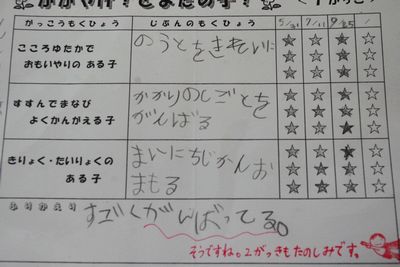 がっこうもくひょう じぶんのもくひょう 5/31 7/11 9/25 /
こころゆたかで
おもいやりの ある子
のうとをきれいに
すすんでまなび
よくかんがえる子
かかりのしごとを
がんばる
きりょく・たいりょくの
ある子
まいにちじかんお
まもる
ふりかえり
すごくがんばってる。
そうですね。2がっきもたのしみです。